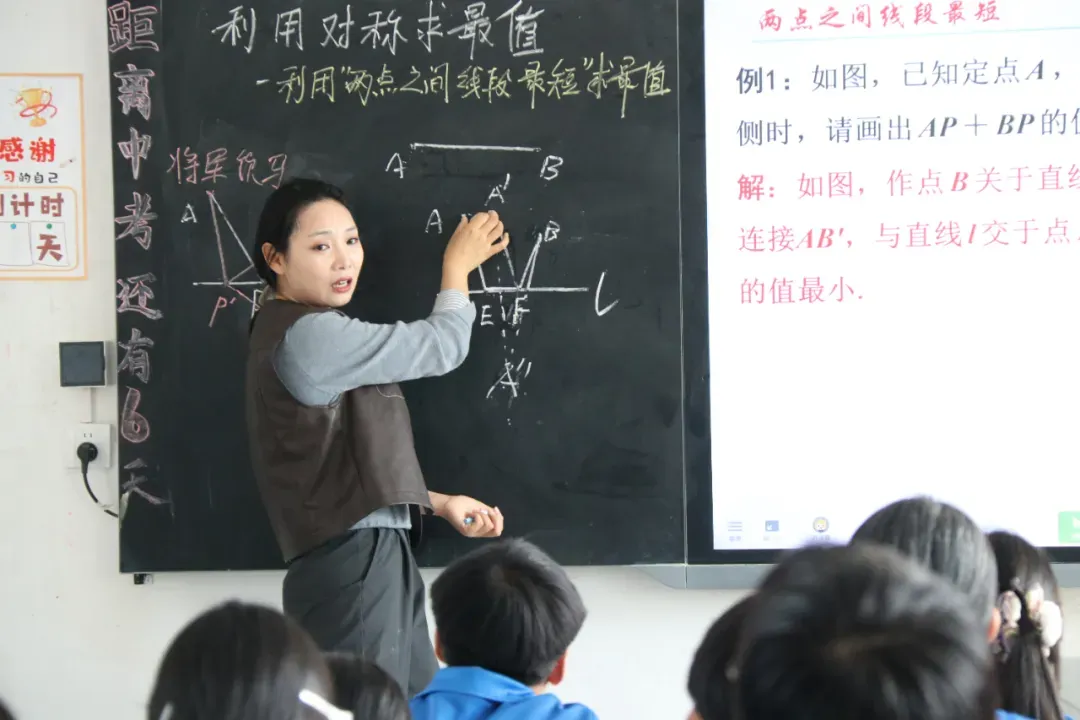 距离中考还有6天
感谢
习的自己
计时
天
利用对称求最值
-利用"两点之间线段最短"求最值
将军饮马
A
P'
A B
A'
A B
E F
L
A''
两点之间线段最短
例1：如图，已知定点A，
侧时，请画出AP＋BP的
解：如图，作点B关于直线
连接AB′，与直线l交于点
的值最小.